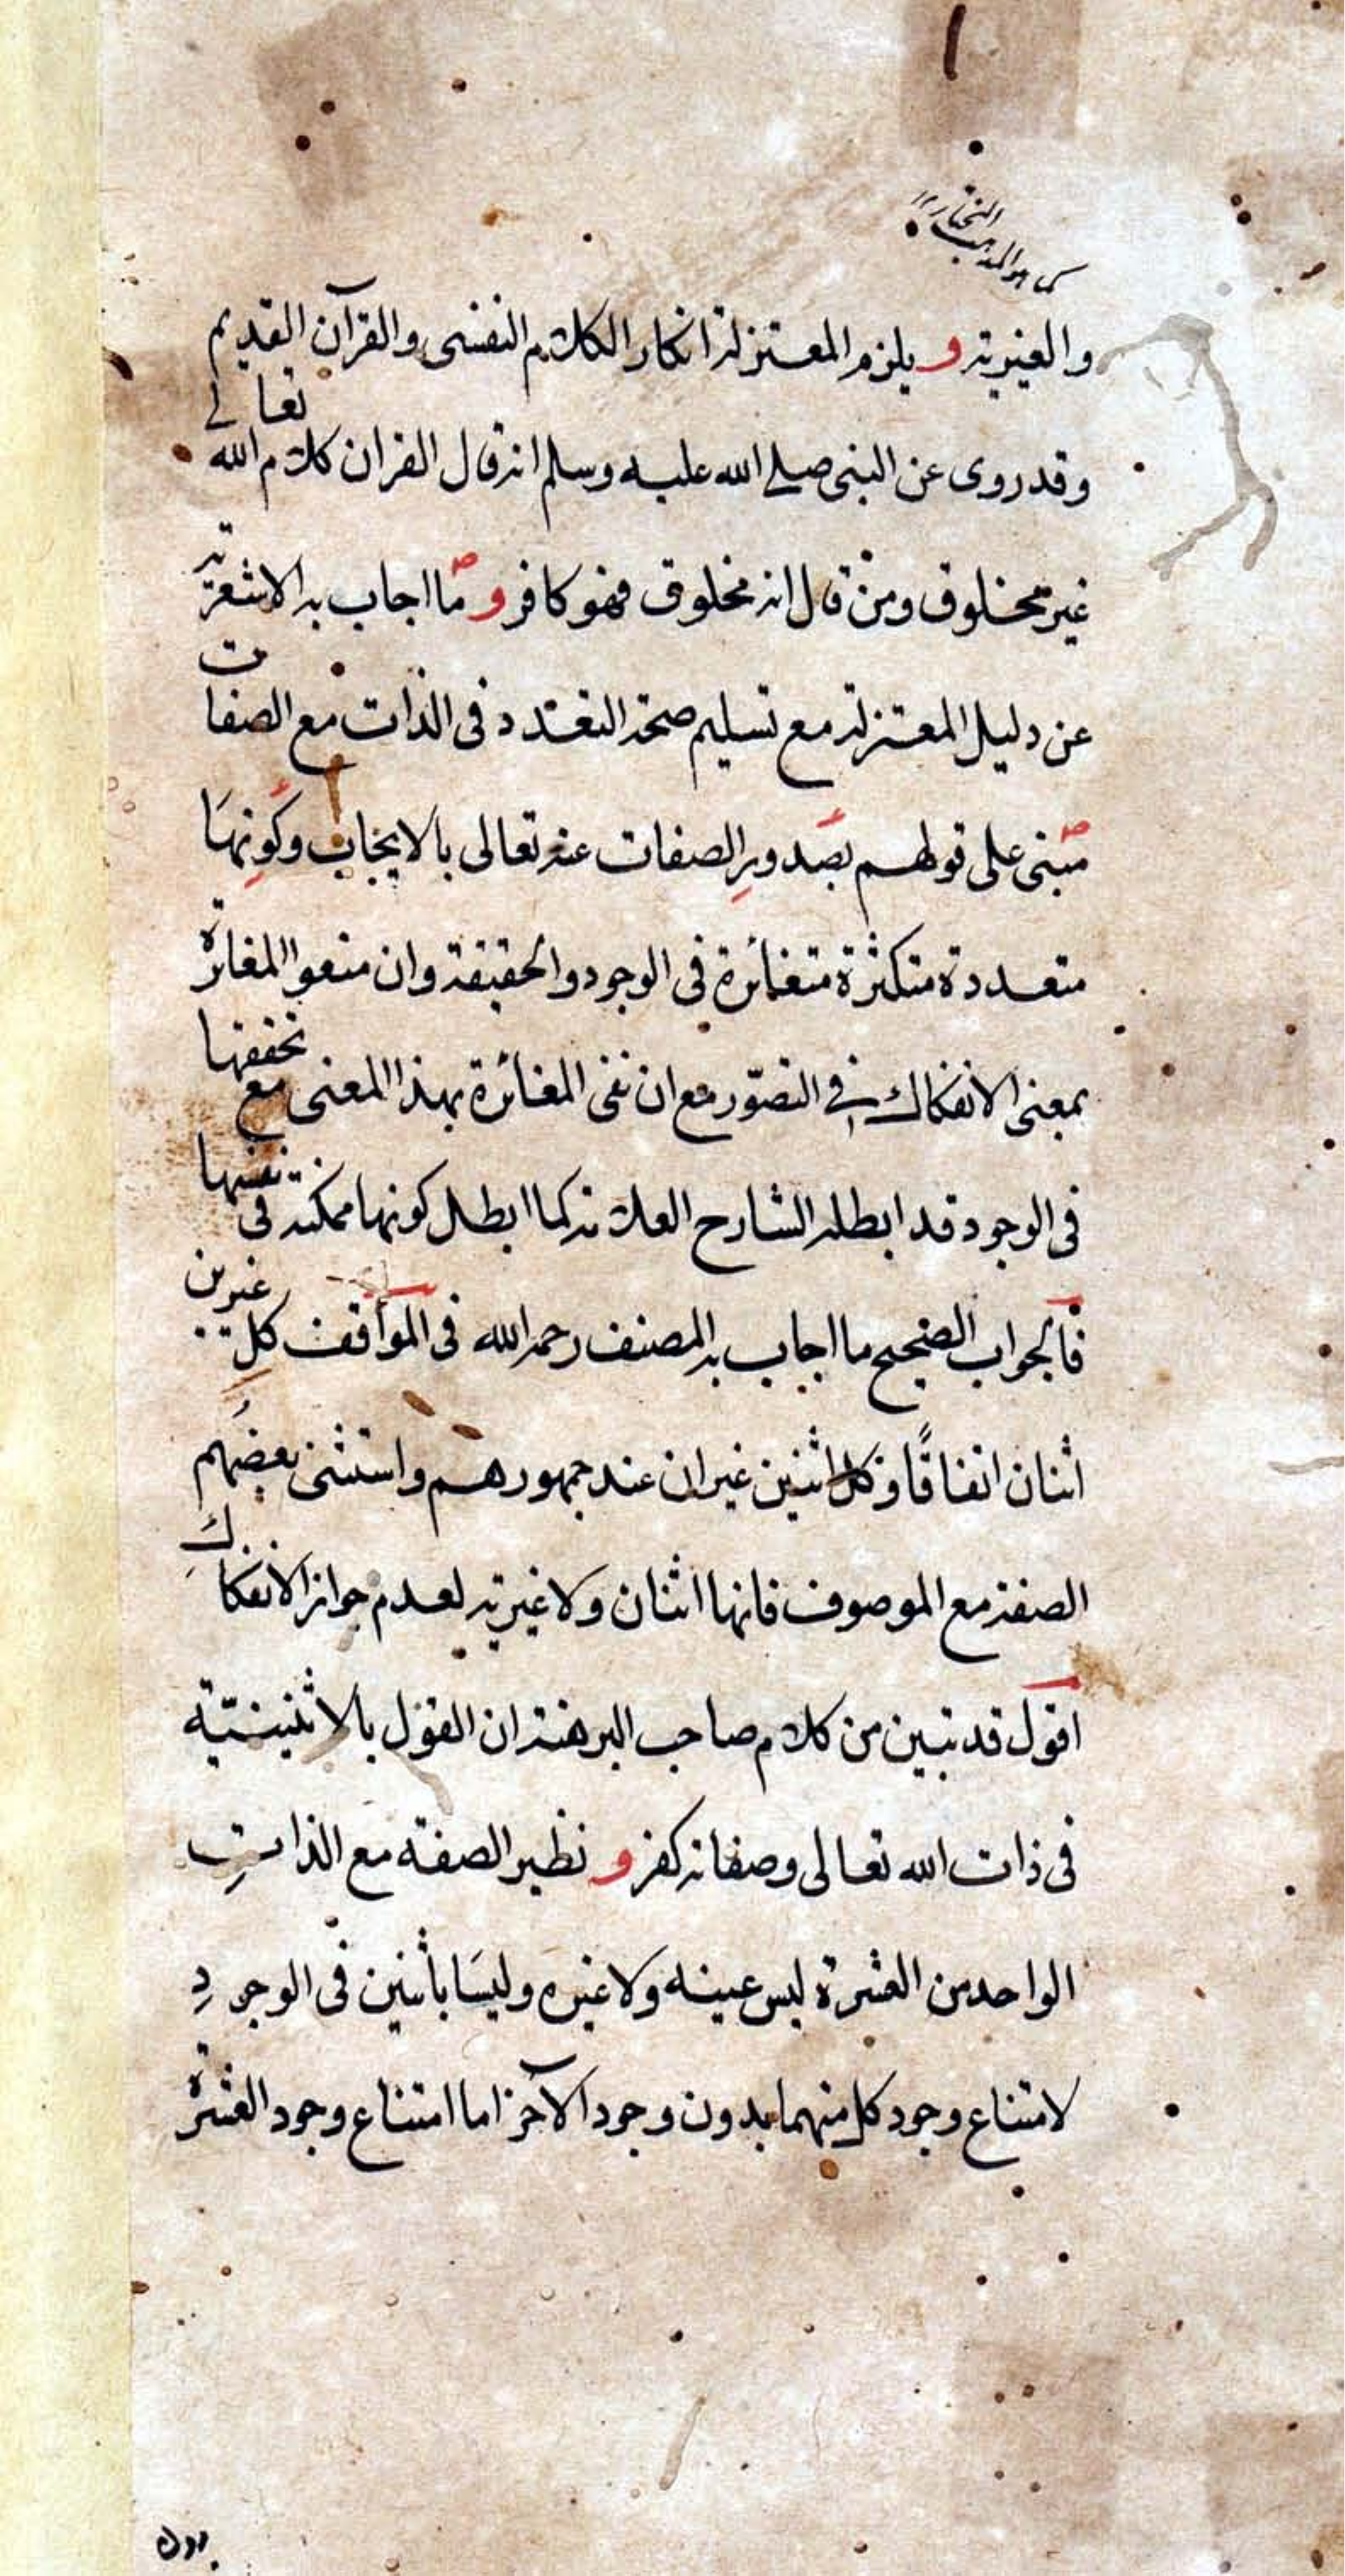 كما هو المذهب المختار
والغيرية و يلزم المعتزلة انكار الكلام النفسى والقرآن القديم
وقد روى عن النبى صلى الله عليه وسلم انه قال القران كلام الله تعالى
غير مخلوق ومن قال انه مخلوق فهو كافر و ما اجاب به الاشعرية
عن دليل المعتزلة مع تسليم صحة التعدد فى الذات مع الصفات
مبنى على قولهم بصدور الصفات عنه تعالى بالايجاب وكونها
متعددة متكثرة متغائرة فى الوجود والحقيقة وان منعوا المغائرة
بمعنى الانفكاك فى التصوّر مع ان نفى المغائرة بهذا المعنى مع تحققها
فى الوجود قد ابطله الشارح العلامة كما ابطل كونها ممكنة فى نفسها
فالجواب الصحيح ما اجاب به المصنف رحمه الله فى المواقف كل غيرين
اثنان اتفاقًا وكل اثنين غيران عند جمهورهم واستثنى بعضهم
الصفة مع الموصوف فانها اثنان ولا غيرية لعدم جواز الانفكاك
اقول قد تبين من كلام صاحب البرهنة ان القول بالاثنينيّة
فى ذات الله تعالى وصفاته كفر و نظير الصفة مع الذات
الواحد من العشرة ليس عينه ولا غيره وليسا باثنين فى الوجود
لامتناع وجود كل منهما بدون وجود الآخر اما امتناع وجود العشرة
بدون